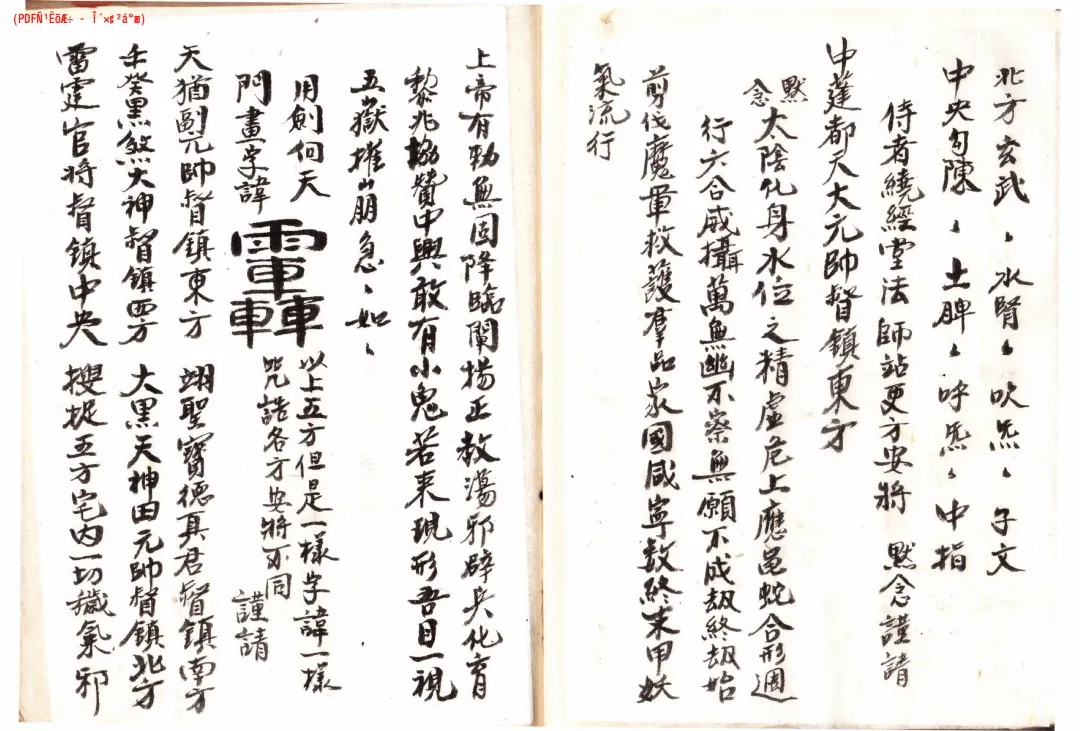 北方玄武、水腎、吹炁、子文
中央勾陳、土脾、呼炁、中指
侍者繞經堂法師站更方安將 默念謹請
中蓬都天大元帥督鎮東方
默念 太陰化身水位之精虛危上應龜蛇合形週
行六合威攝萬無幽不察無願不成劫終劫始
剪伐魔軍救護群品家國咸寧數終末甲妖
氣流行
上帝有勅無固降臨闡揚正教蕩邪辟兵化育
黎兆協贊中興敢有小鬼若來現形吾目一視
五嶽摧崩急、如、
用劍何天
門畫字諱
以上五方但是一樣字諱一樣
咒誥各方安將亦同
謹請
天猶副元帥督鎮東方 翊聖寶德真君督鎮南方
壬癸黑煞大神督鎮西方 大黑天神田元帥督鎮北方
雷霆官將督鎮中央 搜捉五方宅內一切穢氣邪